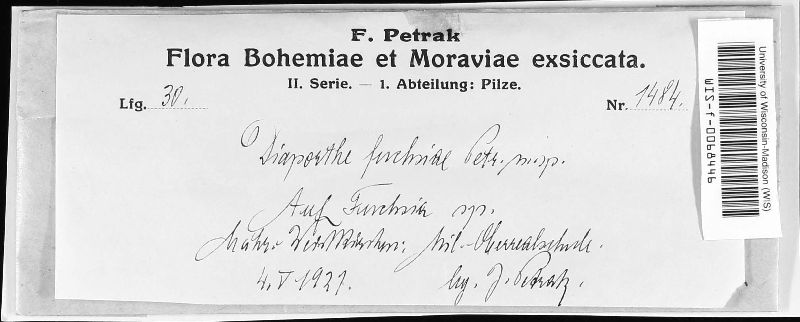 F. Petrak
Flora Bohemiae et Moraviae exsiccata.
II. Serie. — 1. Abteilung: Pilze.
Lfg. 30.
Nr. 1484.
Diaporthe fuchsiae Petr. n. sp.
Auf Fuchsia sp.
Mähr. Weisskirchen: Mil.-Oberrealschule.
4. V 1921. lg. J. Petrak.
University of Wisconsin-Madison (WIS)
WIS-f-0068446